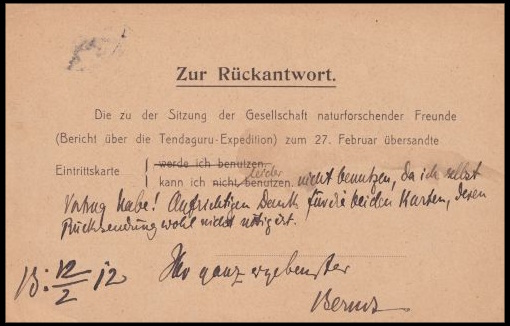 Zur Rückantwort.
Die zu der Sitzung der Gesellschaft naturforschender Freunde
(Bericht über die Tendaguru-Expedition) zum 27. Februar übersandte
Eintrittskarte
werde ich benutzen.
kann ich nicht benutzen. leider nicht benutzen, da ich selbst
Vortrag habe! Aufrichtigen Dank für die beiden Karten, deren
Rücksendung wohl nicht nötig ist.
B: 12/2 12 Ihr ganz ergebenster